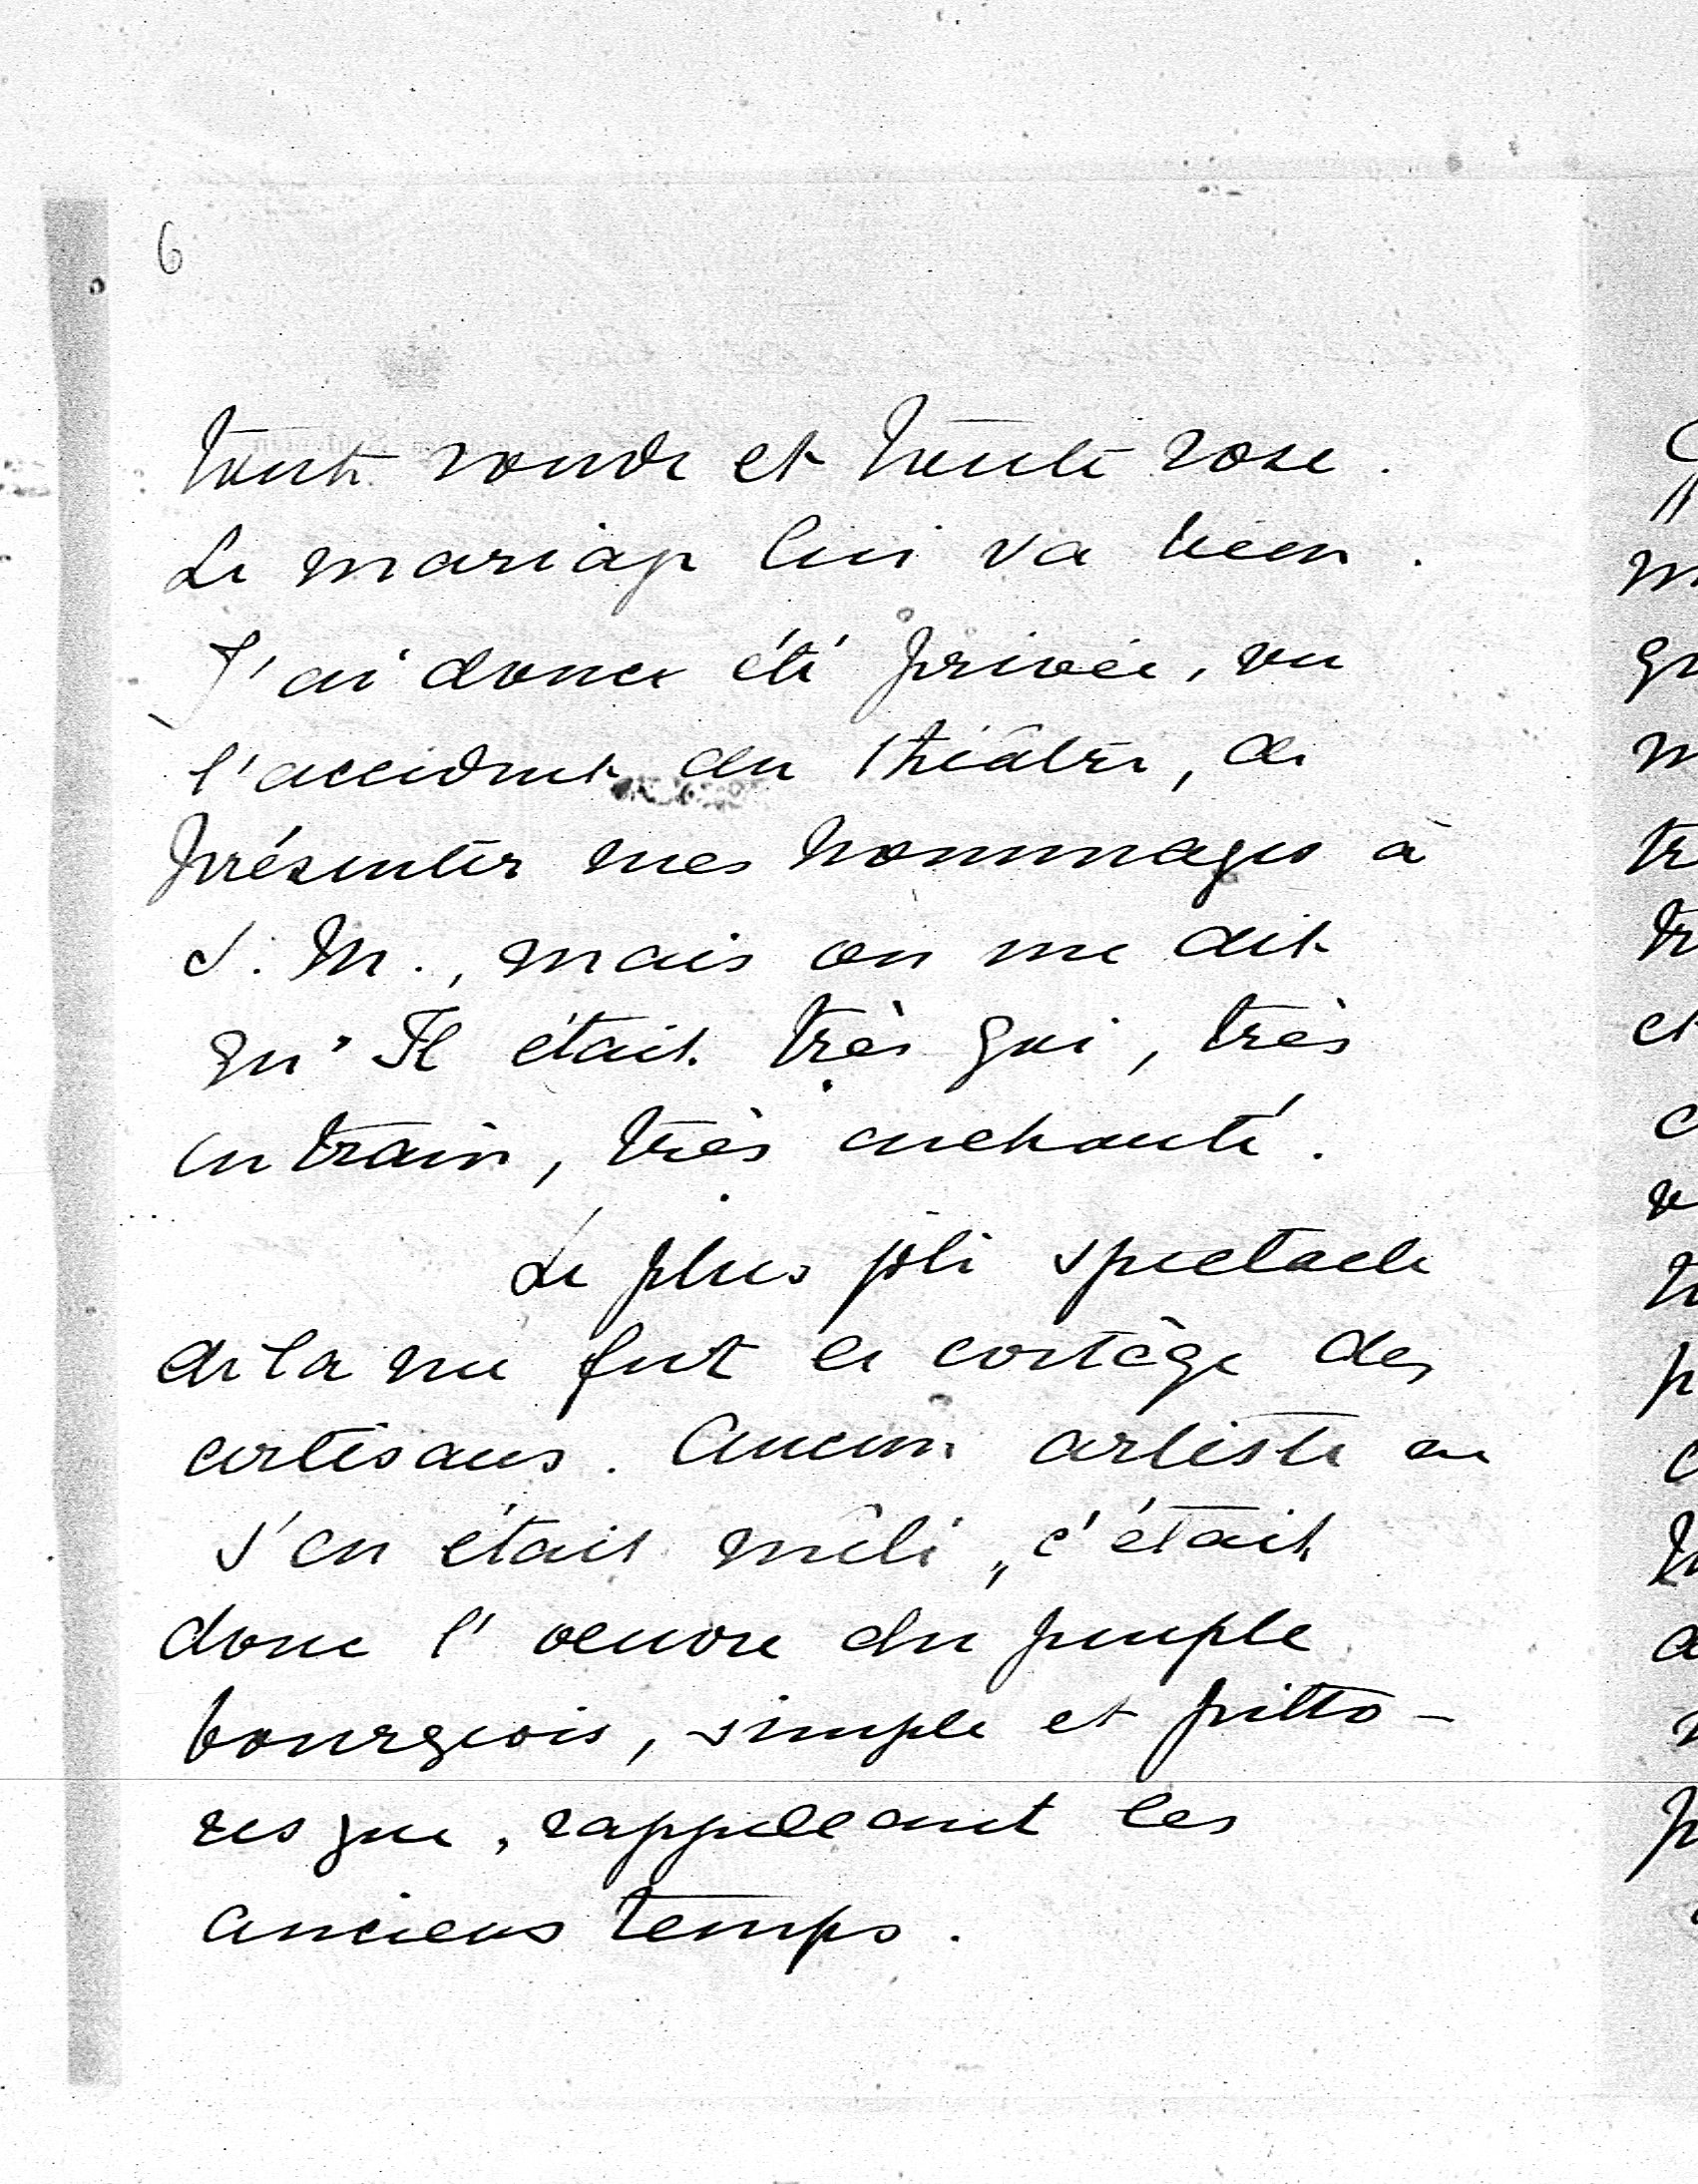 6
toute ronde et toute rose.
Le mariage lui va bien.
J'ai donc été privée, vu
l'accident du théâtre, de
présenter mes hommages à
S. M., mais on me dit
qu'Il était très gai, très
en train, très enchanté.
Le plus joli spectacle
de la rue fut le cortège des
artisans. Aucun artiste ne
s'en était mêlé, c'était
donc l'oeuvre du peuple
bourgeois, simple et pitto-
resque, rappellant les
anciens temps.